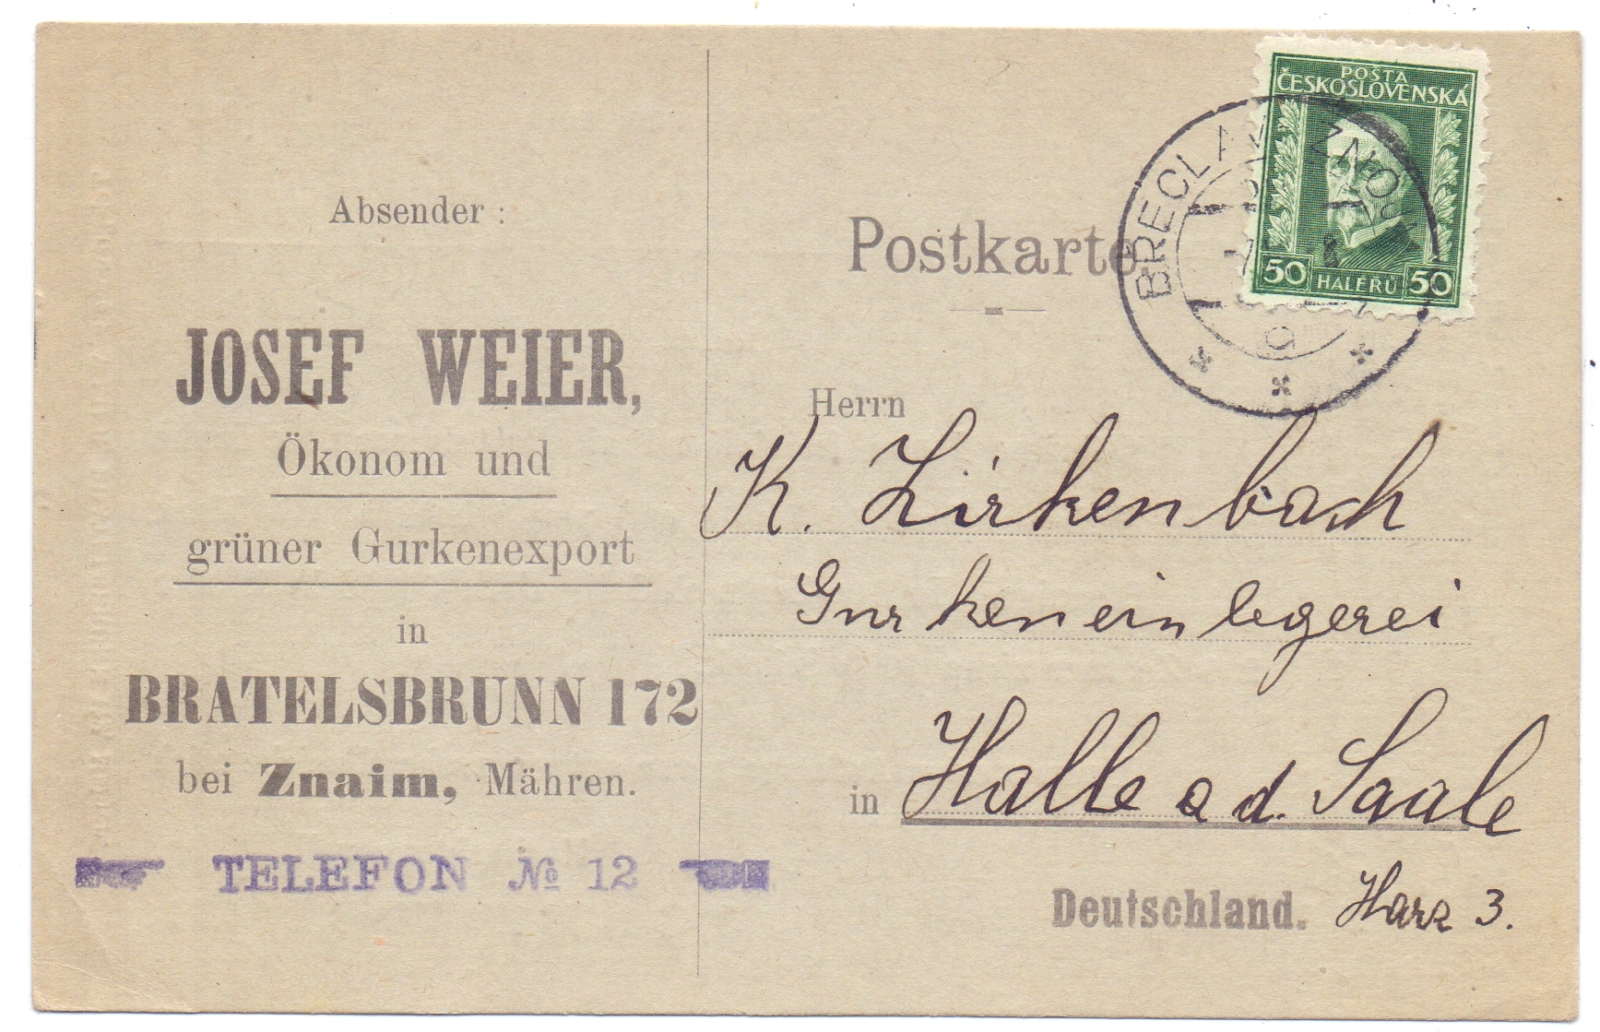 Absender:
JOSEF WEIER,
Ökonom und
grüner Gurkenexport
in
BRATELSBRUNN 172
bei Znaim, Mähren.
TELEFON № 12
POŠTA
ČESKOSLOVENSKÁ
50 HALÉŘŮ 50
BŘECLAV ZNOJ
Postkarte
Herrn
K. Zirkenbach
Gurkeneinlegerei
in Halle a d. Saale
Deutschland. Harz 3.